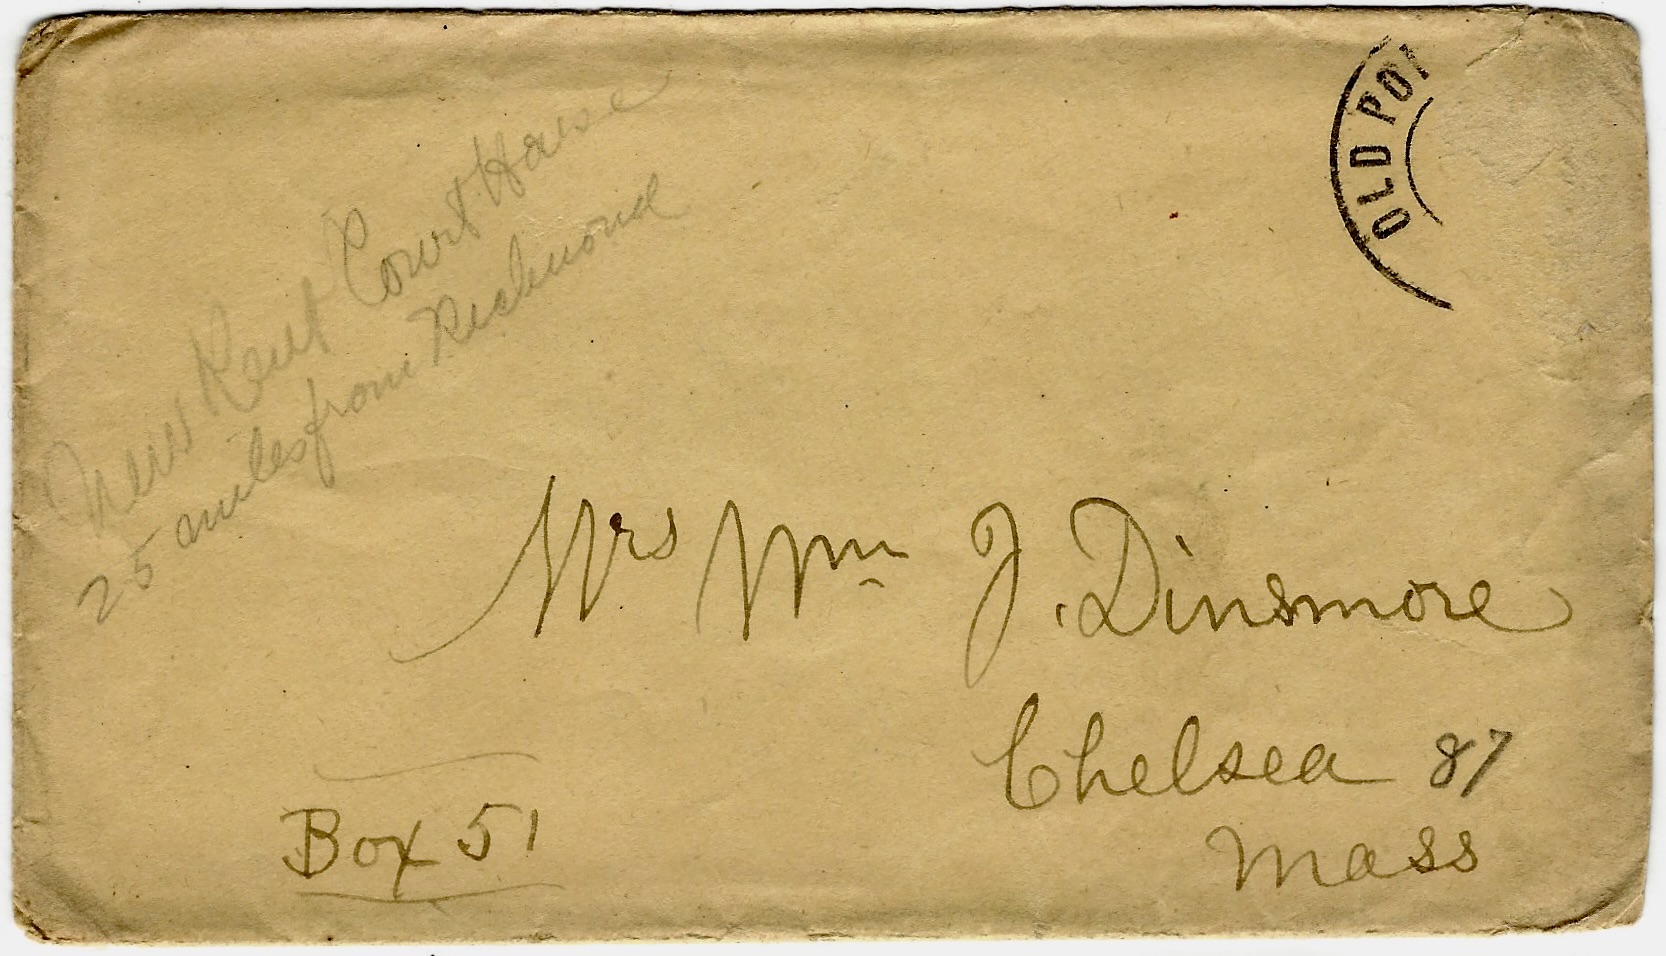 New Kent Court House
25 miles from Richmond
OLD PO
Mrs Wm J. Dinsmore
Chelsea 87
Mass
Box 51